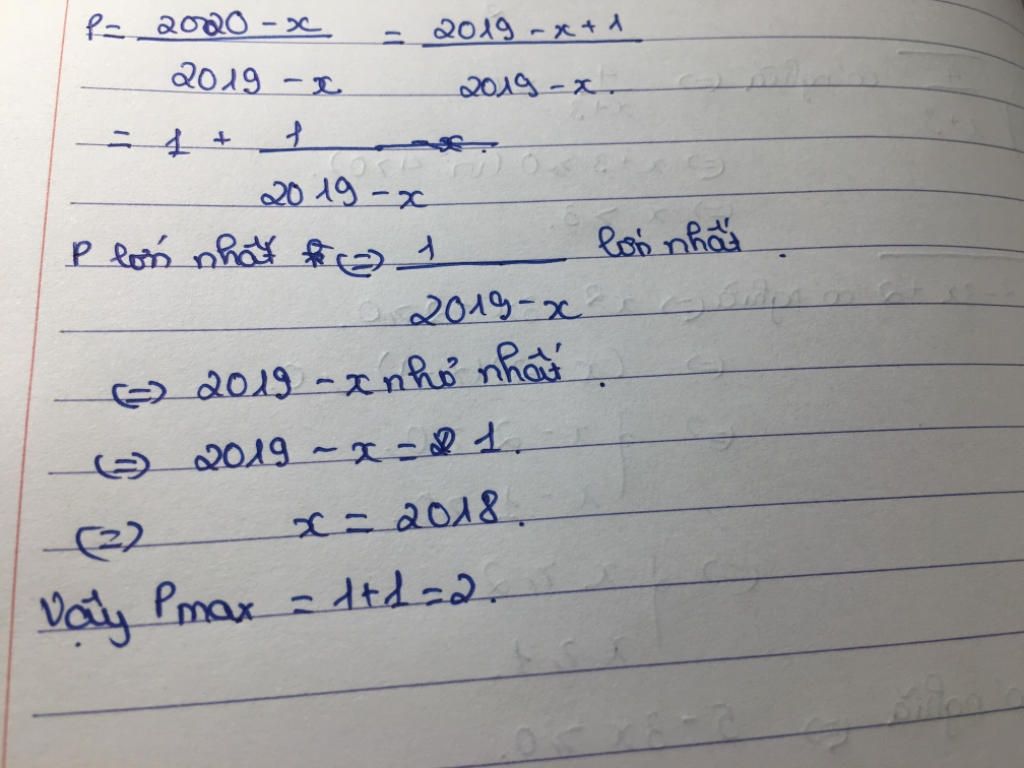 P = 2020 - x / 2019 - x = 2019 - x + 1 / 2019 - x.
= 1 + 1 / 2019 - x
P lớn nhất (=) 1 / 2019 - x lớn nhất.
(=) 2019 - x nhỏ nhất.
(=) 2019 - x = 1.
(=) x = 2018.
Vậy Pmax = 1+1 = 2.